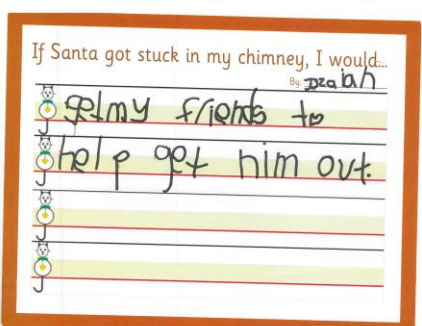 If Santa got stuck in my chimney, I would...
By: Izaiah
get my friends to
help get him out.